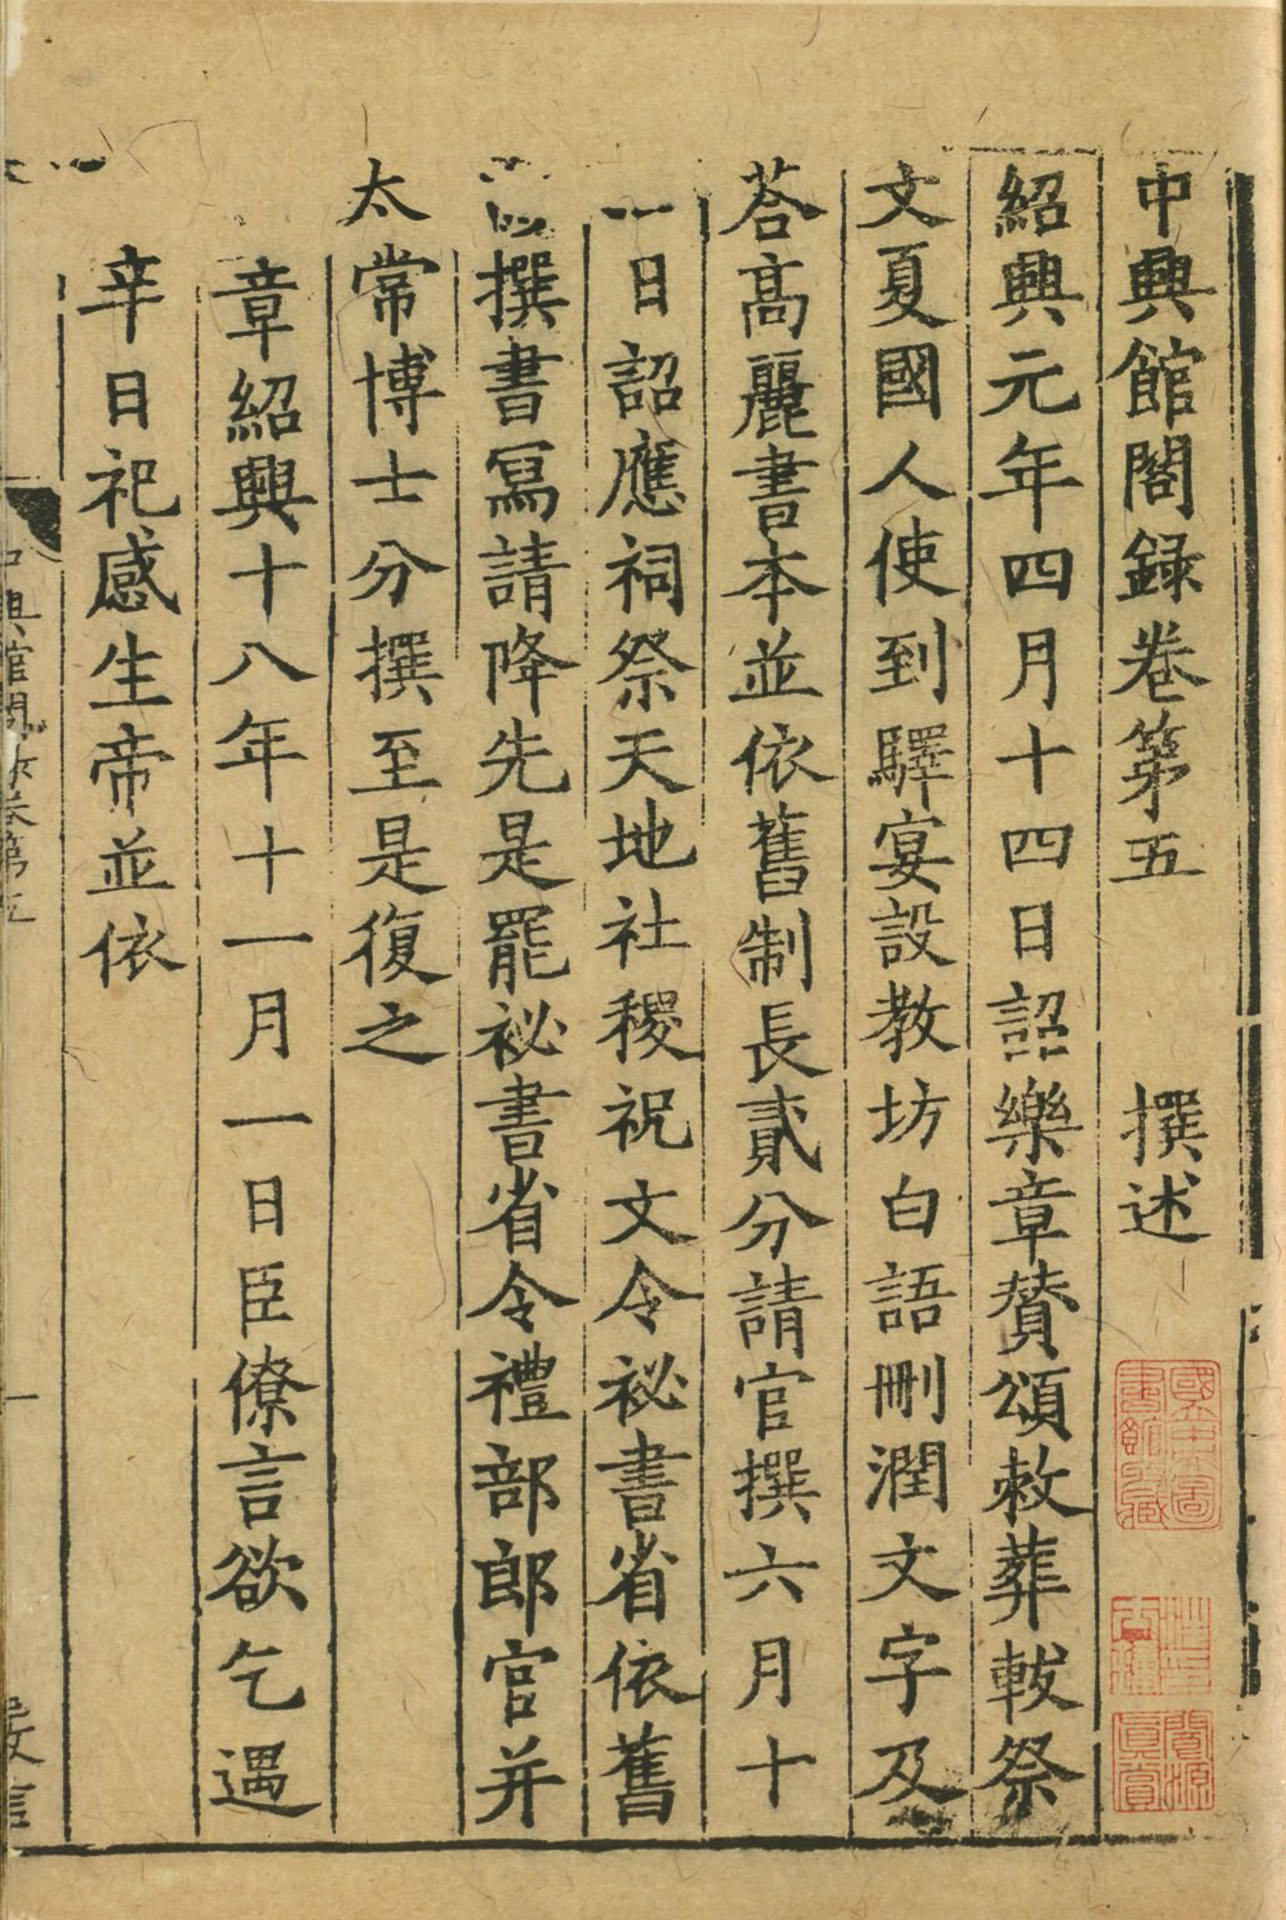 中興館閣録卷第五 撰述
紹興元年四月十四日詔樂章賛頌敕葬軷祭
文夏國人使到驛宴設教坊白語刪潤文字及
荅髙麗書本並依舊制長貳分請官撰六月十
一日詔應祠祭天地社稷祝文令祕書省依舊
撰書冩請降先是罷祕書省令禮部郎官并
太常博士分撰至是復之
章紹興十八年十一月一日臣僚言欲乞遇
辛日祀感生帝並依
國立中央圖書館收藏